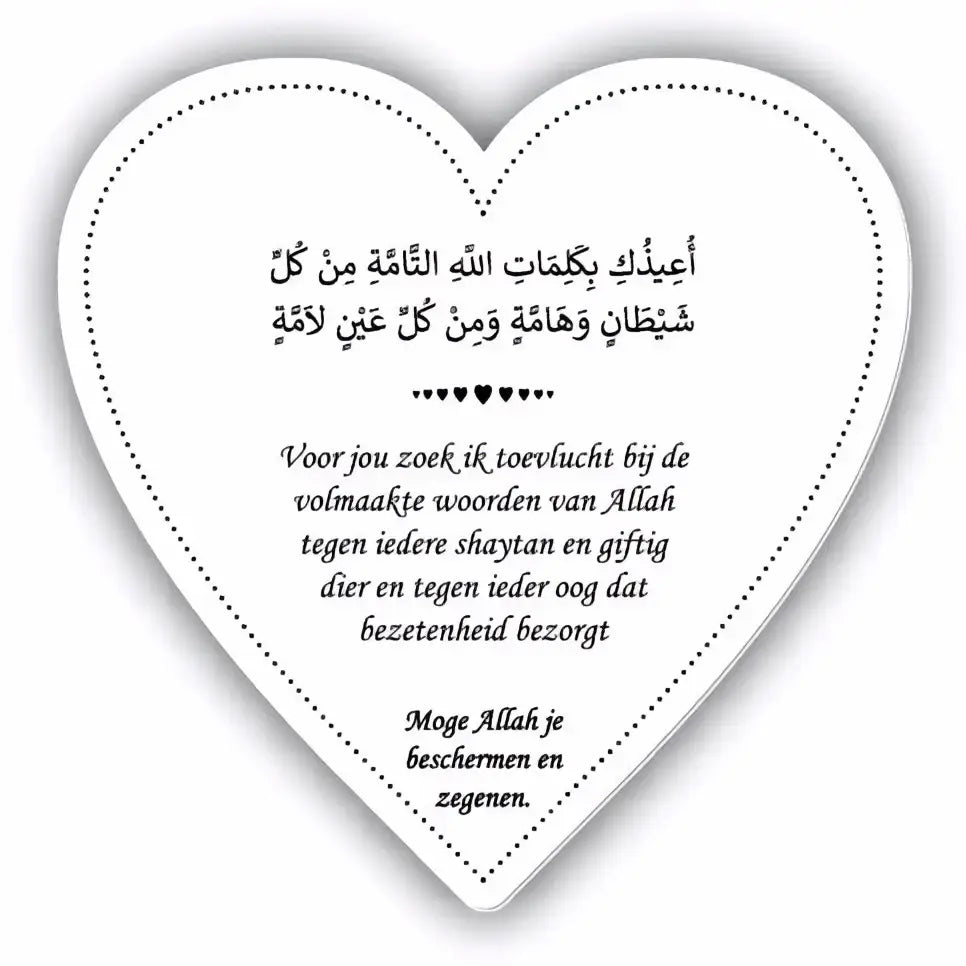 أُعِيذُكِ بِكَلِمَاتِ اللَّهِ التَّامَّةِ مِنْ كُلِّ
شَيْطَانٍ وَهَامَّةٍ وَمِنْ كُلِّ عَيْنٍ لاَمَّةٍ
Voor jou zoek ik toevlucht bij de
volmaakte woorden van Allah
tegen iedere shaytan en giftig
dier en tegen ieder oog dat
bezetenheid bezorgt
Moge Allah je
beschermen en
zegenen.